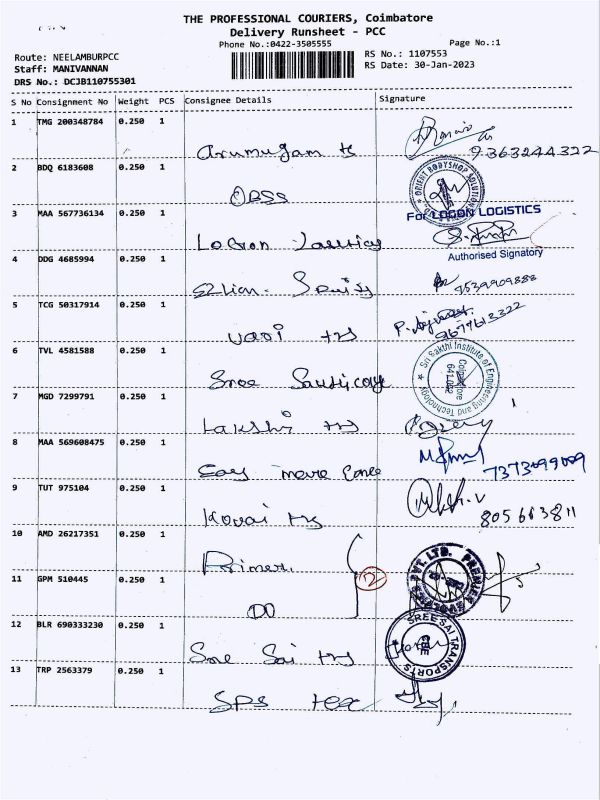 THE PROFESSIONAL COURIERS, Coimbatore
Delivery Runsheet - PCC
Phone No.:0422-3505555
Page No.:1
Route: NEELAMBURPCC
Staff: MANIVANNAN
DRS No.: DCJB110755301
RS No.: 1107553
RS Date: 30-Jan-2023
S No Consignment No Weight PCS Consignee Details Signature
1 TMG 200348784 0.250 1
Arumugam ts
9363244322
2 BDQ 6183608 0.250 1
OBSS
ORIENT BODYSHOP SOLUTION
3 MAA 567736134 0.250 1
For LOGON LOGISTICS
Logon
Authorised Signatory
4 DDG 4685994 0.250 1
7539909888
5 TCG 50317914 0.250 1
9677613322
6 TVL 4581588 0.250 1
Sree
Sri Sakthi Institute of Engineering and Technology
Coimbatore
641 062
7 MGD 7299791 0.250 1
Lakshi ts
8 MAA 569608475 0.250 1
7373099009
9 TUT 975104 0.250 1
Kovai ts
8056663811
10 AMD 26217351 0.250 1
11 GPM 510445 0.250 1
DO
12
PVT. LTD. PREMIER
12 BLR 690333230 0.250 1
Sree Sai ts
SREE SAI TRANSPORTS
CBE
13 TRP 2563379 0.250 1
SPS tex